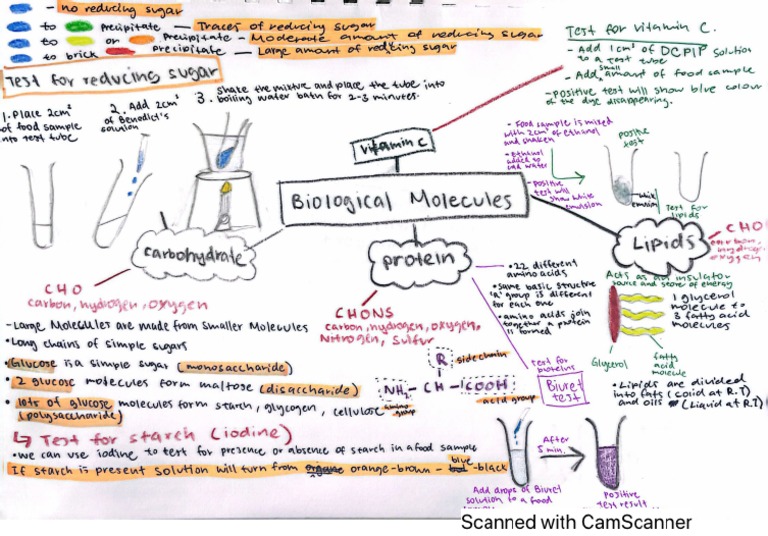 - no reducing sugar
to Precipitate — Traces of reducing sugar
to or Precipitate - Moderate amount of reducing sugar
to brick Precipitate — Large amount of reducing sugar
Test for reducing sugar
1. Place 2cm³
of food sample
into test tube
2. Add 2cm³
of Benedict's
solution
3. Shake the mixture and place the tube into
boiling water bath for 2-3 minutes.
Test for vitamin C.
- Add 1cm³ of DCPIP solution
to a test tube
- Add small amount of food sample
- positive test will show blue colour
of the dye disappearing.
Vitamin C
Biological Molecules
- Food sample is mixed
with 2cm³ of ethanol
and shaken
- Ethanol
added to
water
- positive
test will
show white
emulsion
positive
test
white
emulsion
Test for
lipids
carbohydrate
protein
Lipids
CHO
oxygen
CHO
carbon, hydrogen, oxygen
- Large Molecules are made from smaller Molecules
• Long chains of simple sugars
• Glucose is a simple sugar (monosaccharide)
• 2 glucose molecules form maltose (disaccharide)
• lots of glucose molecules form starch, glycogen, cellulose
(polysaccharide)
↳ Test for starch (iodine)
• we can use iodine to test for presence or absence of starch in a food sample
If starch is present solution will turn from orange-brown - blue-black
CHONS
carbon, hydrogen, oxygen,
Nitrogen, sulfur
• 22 different
amino acids
• same basic structre
'R' group is different
for each one
• amino acids join
together a protein
is formed
R side chain
NH₂ - CH - COOH
group
acid group
test for
proteins
Biuret
test
After
5 min.
Add drops of Biuret
solution to a food
positive
test result
Acts as an insulator
source and store of energy
1 glycerol
molecule to
3 fatty acid
molecules
Glycerol
fatty
acid
molecule
• Lipids are divided
into fats (solid at R.T)
and oils (Liquid at R.T)
Scanned with CamScanner